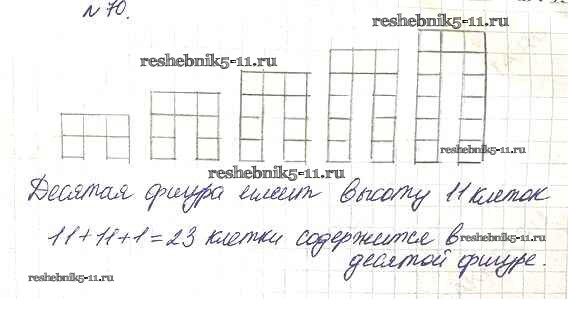 № 70.
reshebnik5-11.ru
reshebnik5-11.ru
reshebnik5-11.ru
reshebnik5-11.ru
Десятая фигура имеет высоту 11 клеток
11+11+1=23 клетки содержится в
десятой фигуре.
reshebnik5-11.ru
reshebnik5-11.ru